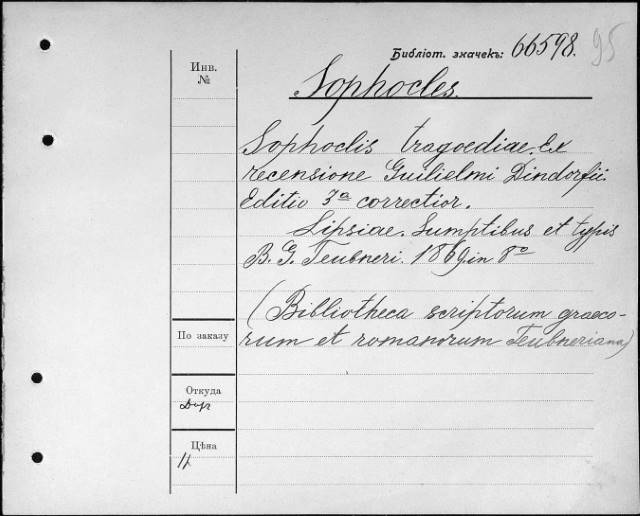 Библіот. значекъ: 66598. 95
Инв.
№
Sophocles.
Sophoclis tragoediae. Ex
recensione Guilielmi Dindorfii.
Editio 3a correctior.
Lipsiae. Sumptibus et typis
B. G. Teubneri. 1869. in 8o
(Bibliotheca scriptorum graeco-
rum et romanorum Teubneriana)
По заказу
Откуда
Цѣна